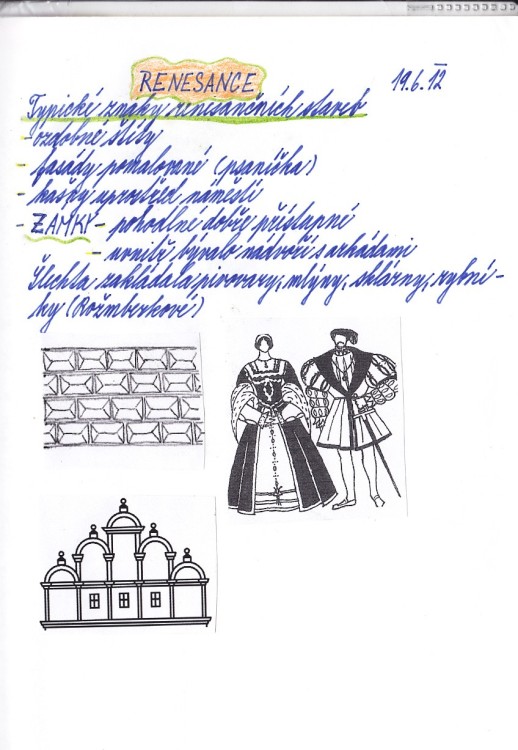 RENESANCE 19.6.12
Typické znaky renesančních staveb
- ozdobné štíty
- fasády pomalované (psaníčka)
- kašny uprostřed náměstí
- ZÁMKY - pohodlné dobře přístupné
- uvnitř bývalo nádvoří s arkádami
Šlechta zakládala pivovary, mlýny, sklárny, rybní-
ky (Rožmberkové)